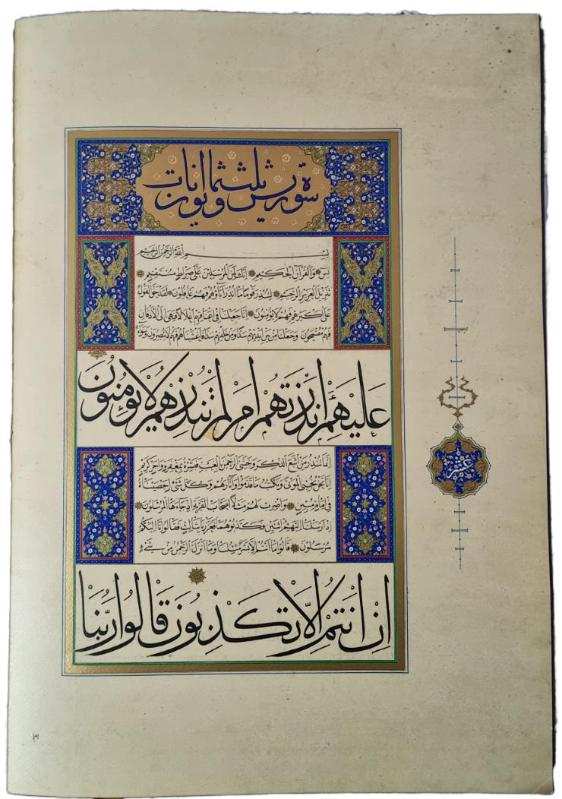 سورة يس ثلث وثمانون ايات
بسم الله الرحمن الرحيم
يس والقرآن الحكيم إنك لمن المرسلين على صراط مستقيم
تنزيل العزيز الرحيم لتنذر قوما ما أنذر آباؤهم فهم غافلون لقد حق القول
على أكثرهم فهم لا يؤمنون إنا جعلنا في أعناقهم أغلالا فهي إلى الأذقان
فهم مقمحون وجعلنا من بين أيديهم سدا ومن خلفهم سدا فأغشيناهم فهم لا يبصرون وسواء
عليهم ءأنذرتهم أم لم تنذرهم لا يؤمنون
إنما تنذر من اتبع الذكر وخشي الرحمن بالغيب فبشره بمغفرة وأجر كريم
إنا نحن نحيي الموتى ونكتب ما قدموا وآثارهم وكل شيء أحصيناه
في إمام مبين واضرب لهم مثلا أصحاب القرية إذ جاءها المرسلون
إذ أرسلنا إليهم اثنين فكذبوهما فعززنا بثالث فقالوا إنا إليكم
مرسلون قالوا ما أنتم إلا بشر مثلنا وما أنزل الرحمن من شيء
إن أنتم إلا تكذبون قالوا ربنا
عشر